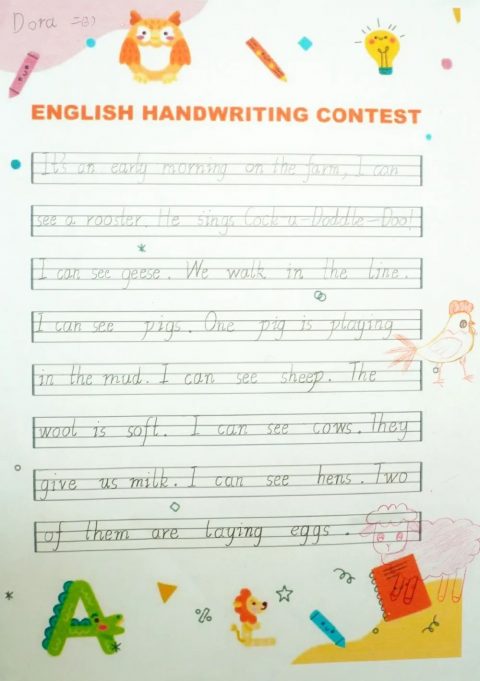 Dora 二(3)
ENGLISH HANDWRITING CONTEST
It's an early morning on the farm, I can
see a rooster. He sings Cock-a-Doddle-Doo!
I can see geese. We walk in the line.
I can see pigs. One pig is playing
in the mud. I can see sheep. The
wool is soft. I can see cows. They
give us milk. I can see hens. Two
of them are laying eggs.